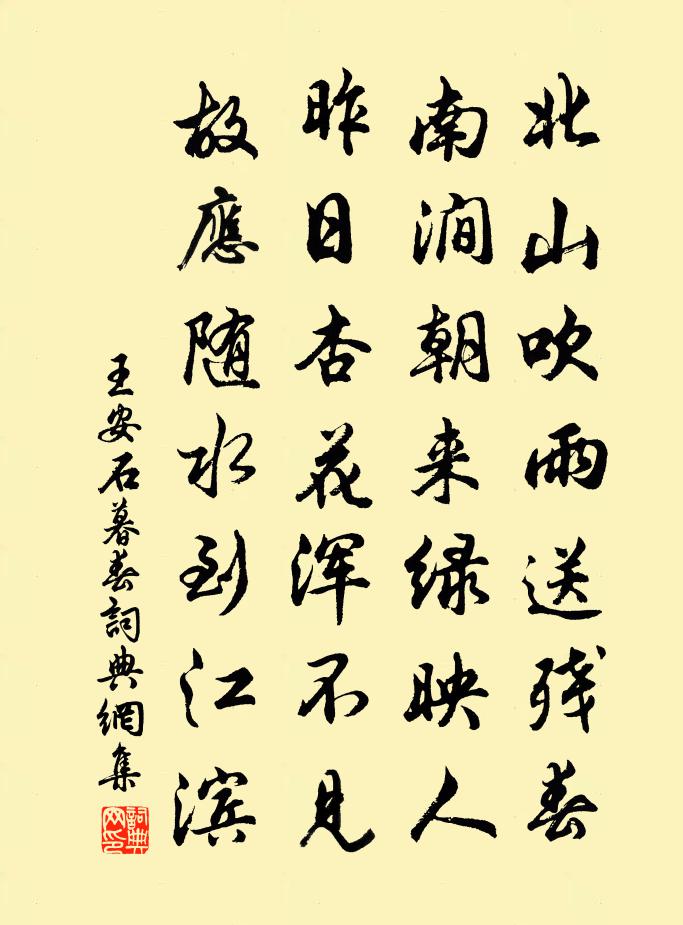 北山吹雨送残春
南涧朝来绿映人
昨日杏花浑不見
故應随水到江滨
王安石暮春詞典網集
詞典网印